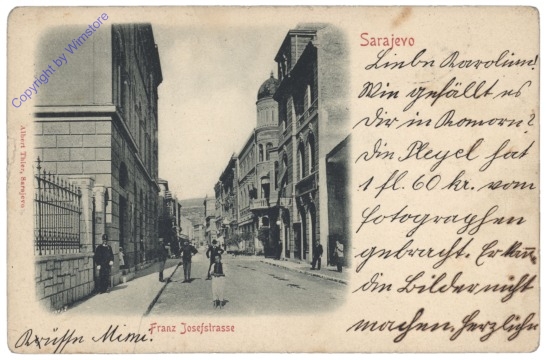 Sarajevo
Liebe Karolin!
Wie gefällt es
Dir in Komorn?
Die Pleyel hat
1 fl. 60 kr. vom
Fotographen
gebracht. Er kann
die Bilder nicht
machen, herzliche
Grüsse Mimi.
Franz Josefstrasse
Albert Thier, Sarajevo.
Copyright by Wimstore